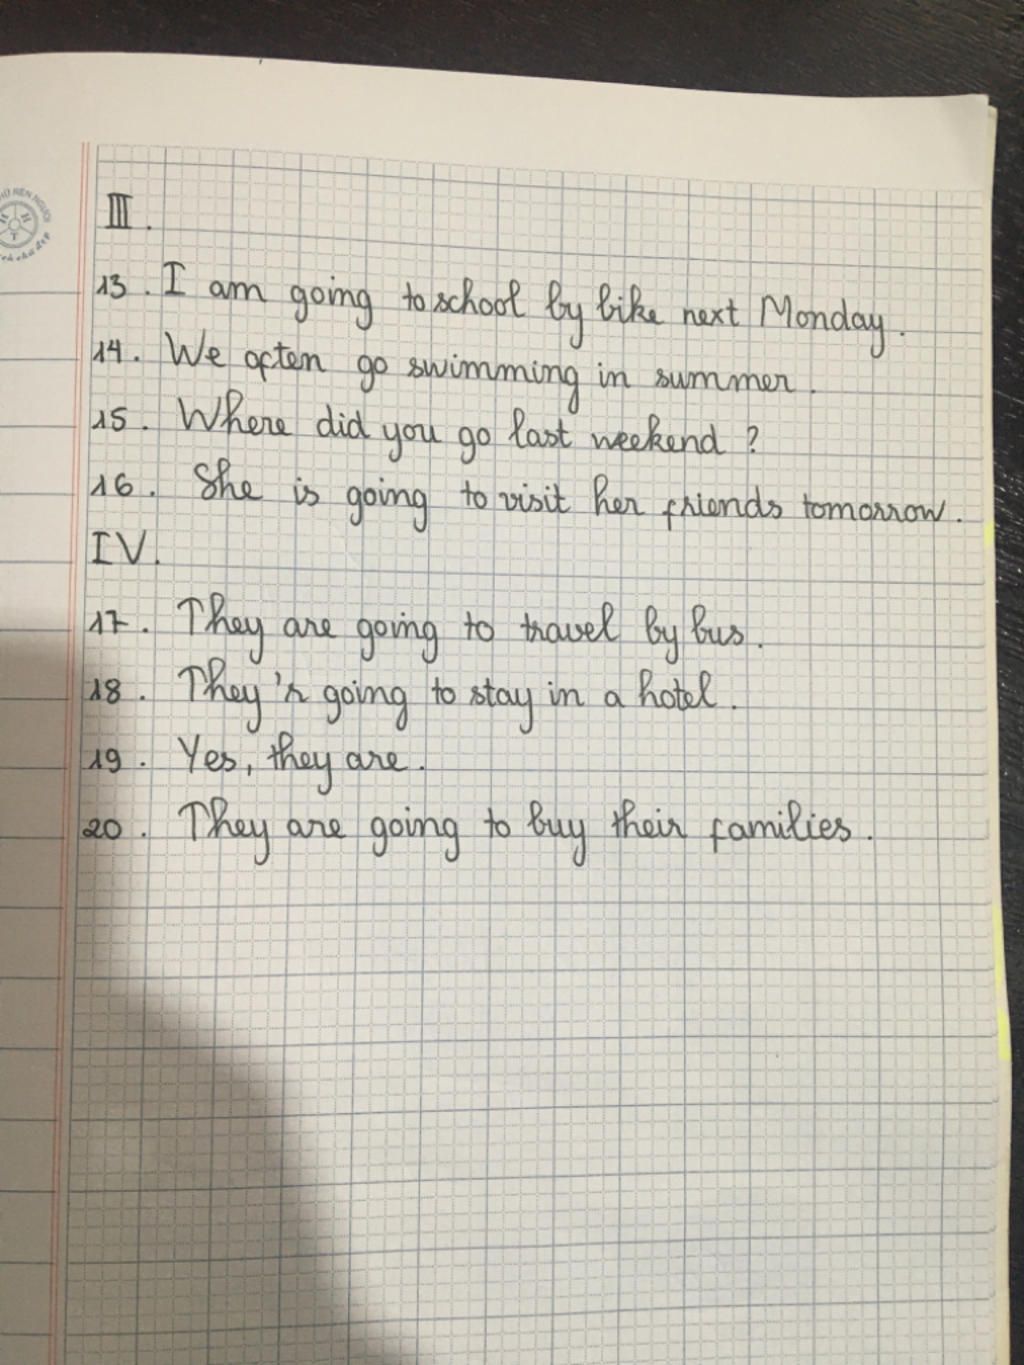 III.
13. I am going to school by bike next Monday.
14. We often go swimming in summer.
15. Where did you go last weekend?
16. She is going to visit her friends tomorrow.
IV.
17. They are going to travel by bus.
18. They'r going to stay in a hotel.
19. Yes, they are.
20. They are going to buy their families.